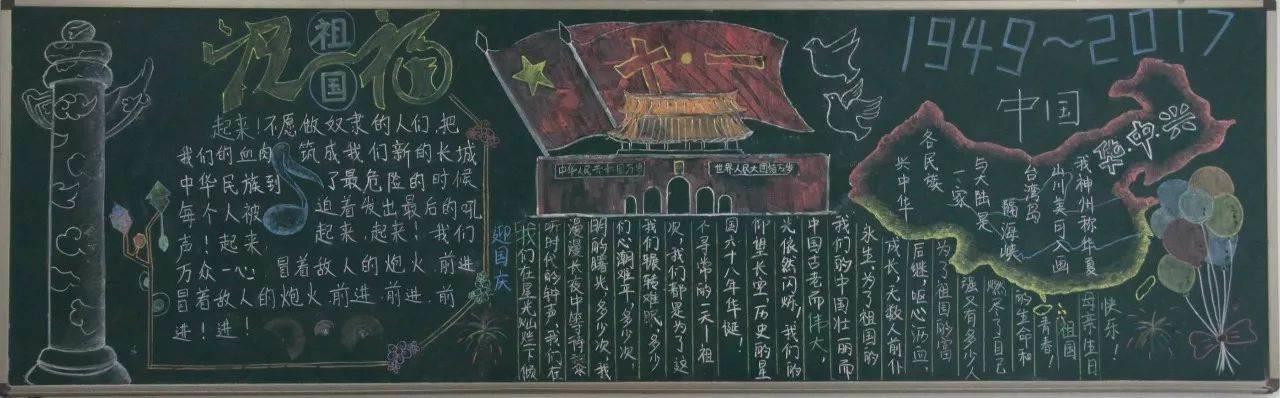 祝福
祖国
起来!不愿做奴隶的人们,把
我们的血肉,筑成我们新的长城
中华民族到了最危险的时候
每个人被迫着发出最后的吼
声!起来,起来,起来!我们
万众一心,冒着敌人的炮火,前进
冒着敌人的炮火前进,前进,前
进!进!
十·一
中华人民共和国万岁
世界人民大团结万岁
迎国庆
我们在星光灿烂下倾
听时代的钟声,我们在
漫漫长夜中等待黎
明的曙光,多少次,我
们心潮难平,多少次,
我们辗转难眠,多少
次,我们都是为了这
不寻常的一天!祖
国六十八年华诞!
仰望长空,历史的星
光依然闪烁,我们的
中国古老而伟大,
我们的中国壮丽而
永生,为了祖国的
成长,无数人前仆
后继,呕心沥血,
为了祖国的富
强又有多少人
燃尽了自己
的生命和
青春!
祖国
母亲生日
快乐!
1949~2017
中国
华·中·兴
我神州称华夏
山川美可入画
台湾岛
隔海峡
与大陆是
一家
各民族
兴中华